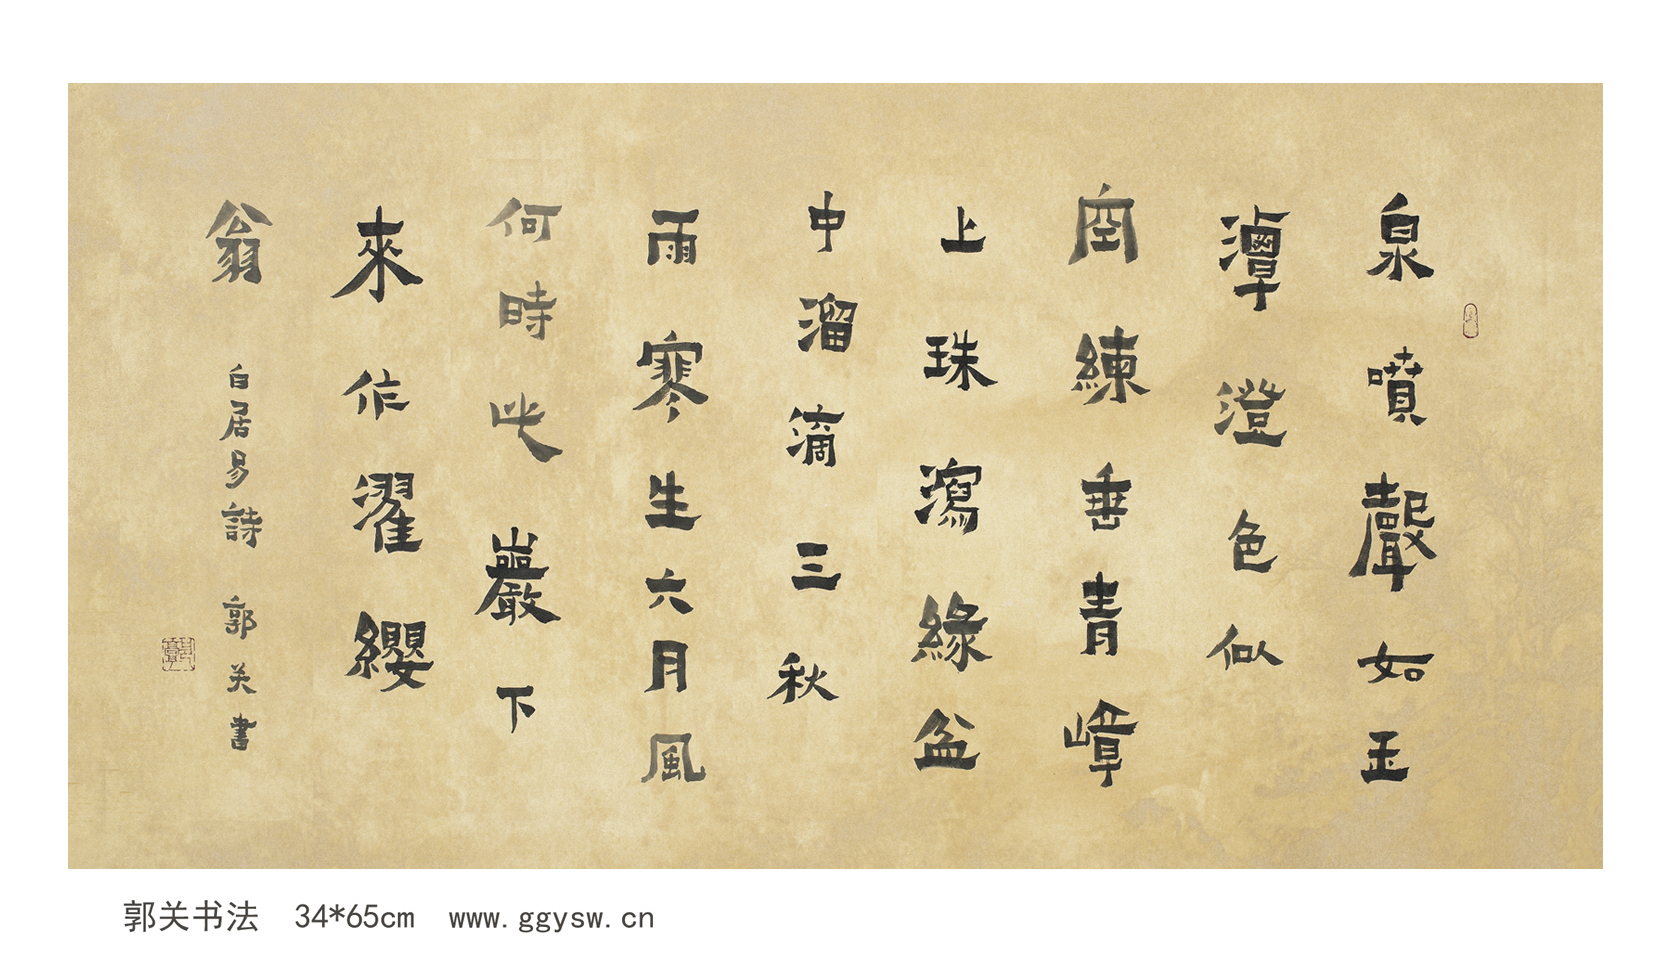 泉噴聲如玉
潭澄色似
空練垂青嶂
上珠瀉綠盆
中溜滴三秋
雨寒生六月風
何時此巖下
來作濯纓
翁
白居易詩 郭关書
郭关书法 34*65cm www.ggysw.cn